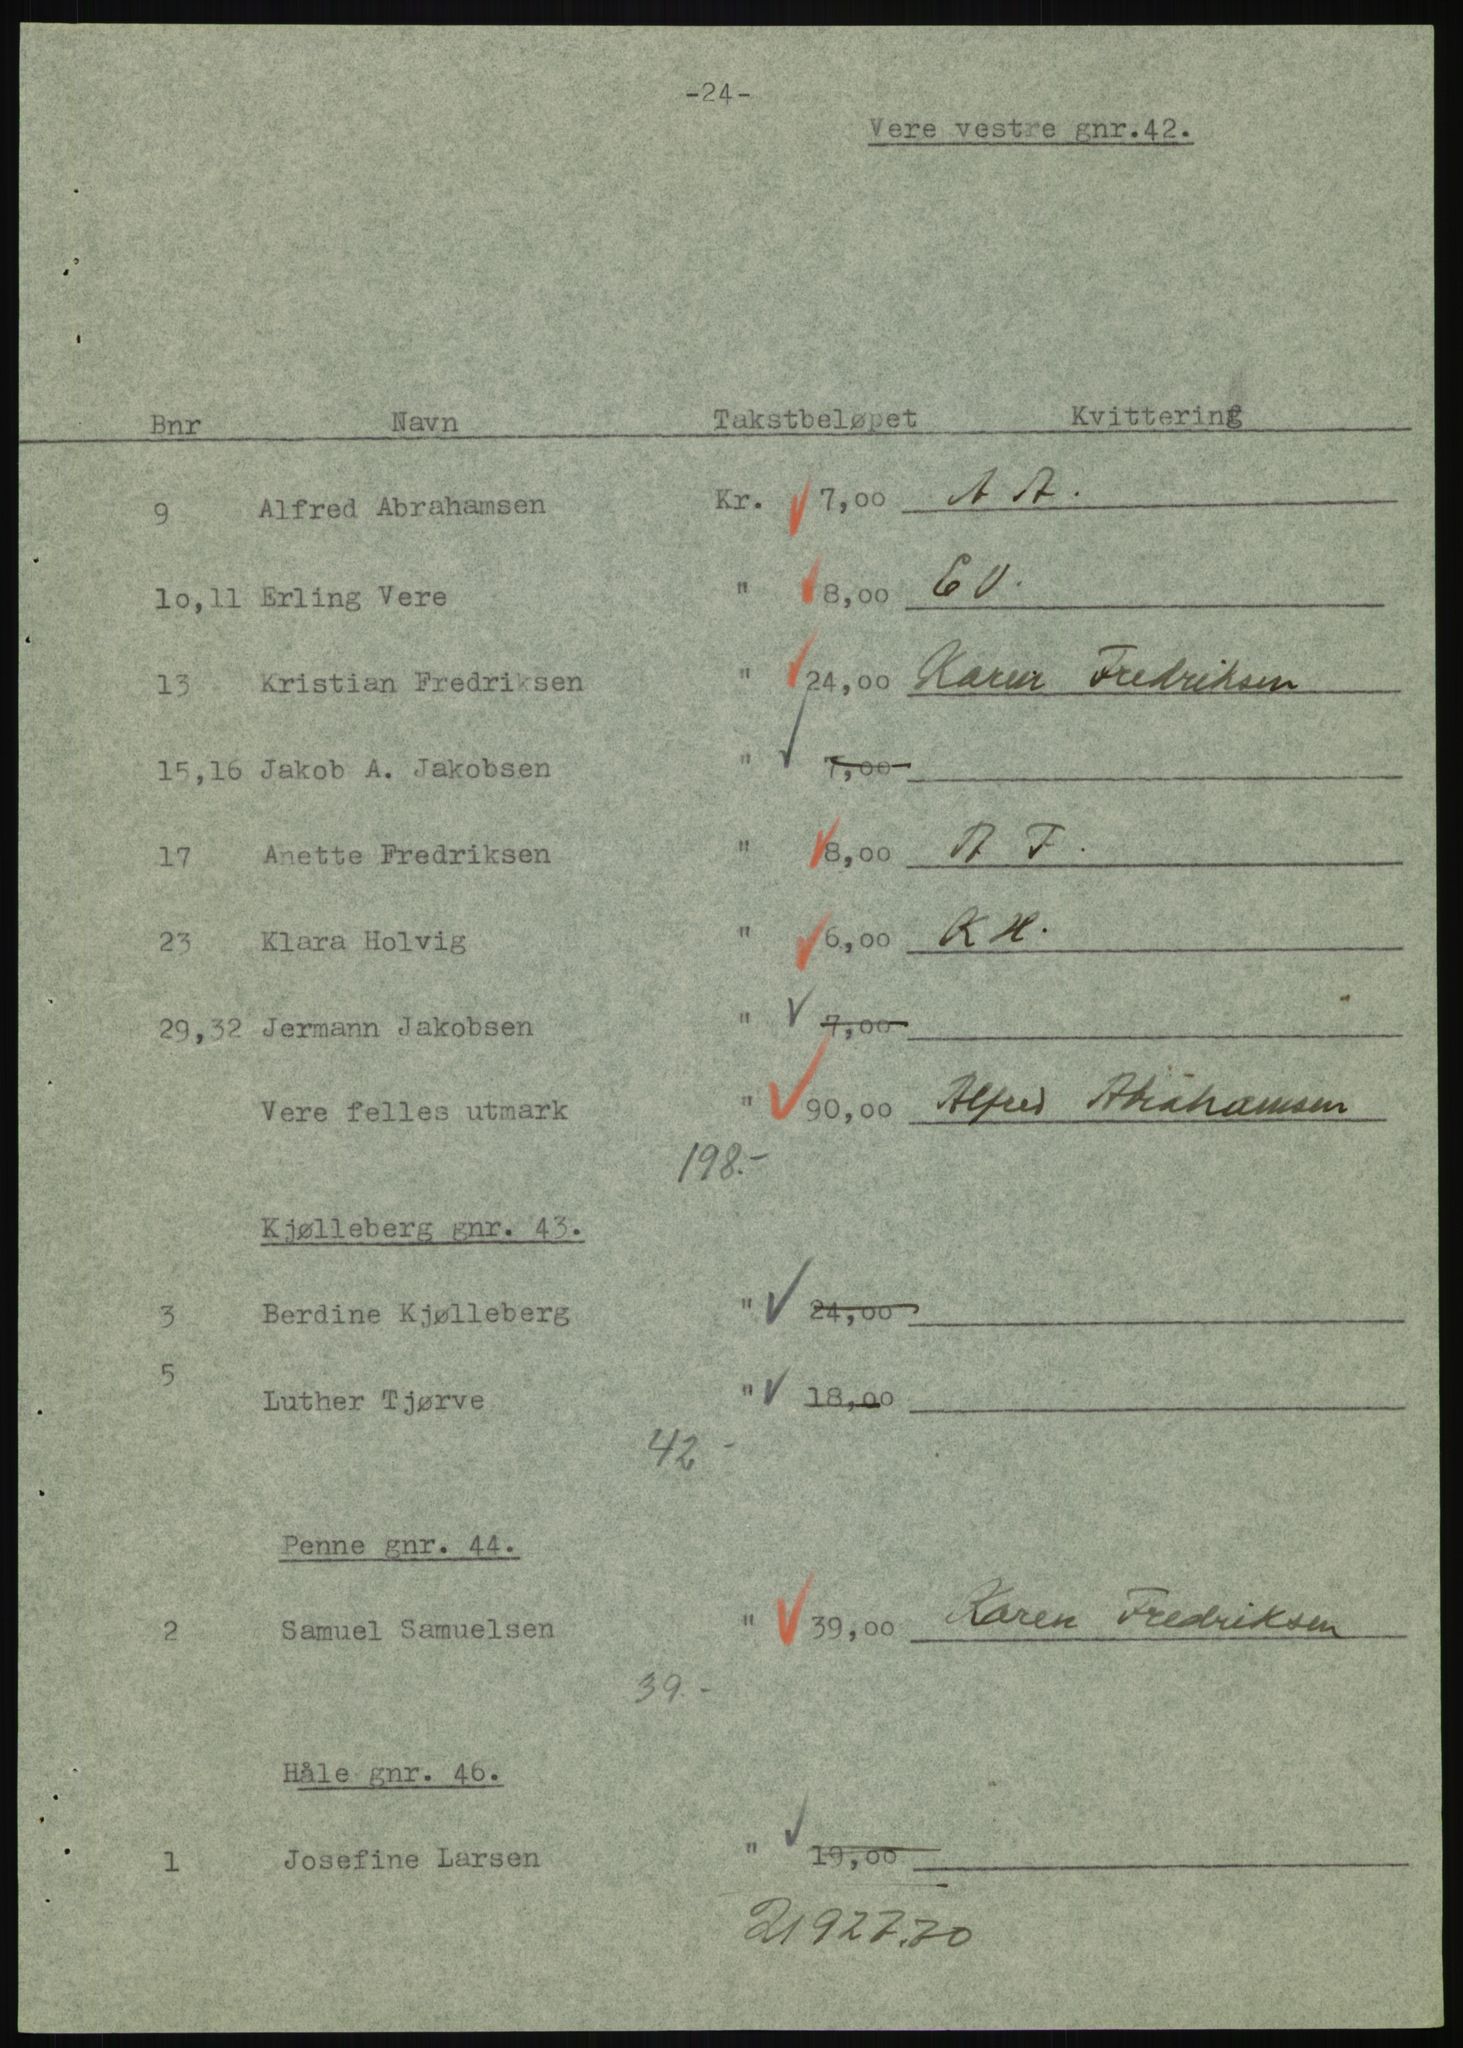 -24-
Vere vestre gnr.42.
Bnr Navn Takstbeløpet Kvittering
9 Alfred Abrahamsen Kr. 7,00 A A.
10,11 Erling Vere " 8,00 E V.
13 Kristian Fredriksen " 24,00 Karen Fredriksen
15,16 Jakob A. Jakobsen " 7,00
17 Anette Fredriksen " 8,00 A F.
23 Klara Holvig " 6,00 K H.
29,32 Jermann Jakobsen " 7,00
Vere felles utmark " 90,00 Alfred Abrahamsen
198.-
Kjølleberg gnr. 43.
3 Berdine Kjølleberg " 24,00
5
Luther Tjørve " 18,00
42 -
Penne gnr. 44.
2 Samuel Samuelsen " 39,00 Karen Fredriksen
39.-
Håle gnr. 46.
1 Josefine Larsen " 19,00
21927.70